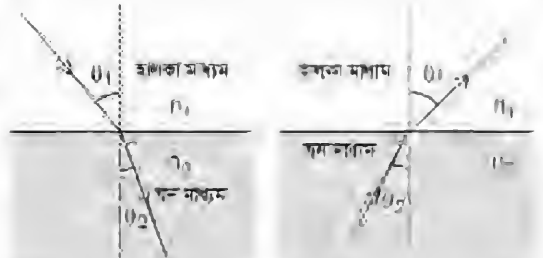 θ₁
হালকা মাধ্যম
n₁
n₂
ঘন মাধ্যম
θ₂
হালকা মাধ্যম
θ₁
n₁
ঘন মাধ্যম
θ₂